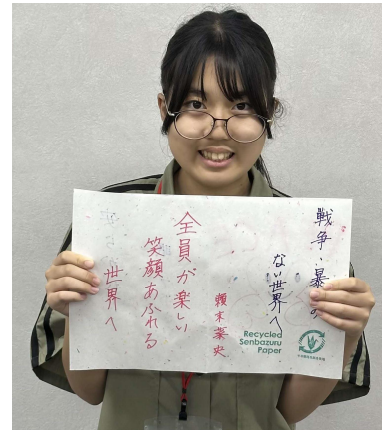 戦争・暴力の
ない世界へ
全員が楽しい
笑顔あふれる
世界へ
Recycled
Senbazuru
Paper